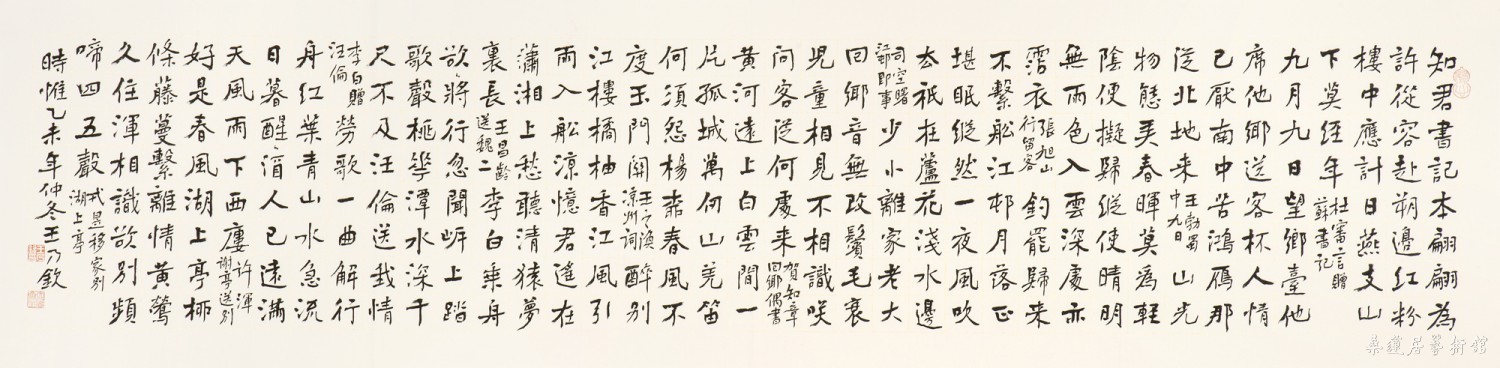 知君書記本翩翩為
許從容赴朔邊紅粉
樓中應計日燕支山
下莫經年 杜審言贈蘇書記
九月九日望鄉臺他
席他鄉送客杯人情
已厭南中苦鴻雁那
從北地來 王勃蜀中九日 山光
物態弄春暉莫為輕
陰便擬歸縱使晴明
無雨色入雲深處亦
霑衣 張旭山行留客 釣罷歸來
不繫船江邨月落正
堪眠縱然一夜風吹
去衹在蘆花淺水邊
司空曙江邨即事 少小離家老大
回鄉音無改鬢毛衰
児童相見不相識咲
問客從何處來 賀知章回鄉偶書
黃河遠上白雲間一
片孤城萬仞山羌笛
何須怨楊柳春風不
度玉門關 王之渙涼州詞 醉別
江樓橘柚香江風引
雨入船涼憶君遙在
瀟湘上愁聽清猿夢
裏長 王昌齡送魏二 李白乘舟
欲〻將行忽聞岍上踏
歌聲桃花潭水深千
尺不及汪倫送我情
李白贈汪倫 勞歌一曲解行
舟紅葉青山水急流
日暮醒〻酒人已遠滿
天風雨下西樓 許渾謝亭送別
好是春風湖上亭柳
條藤蔓繫離情黃鶯
久住渾相識欲別頻
啼四五聲 戎昱移家別湖上亭
時惟乙未年仲冬王乃欽
桑蓮居藝術館